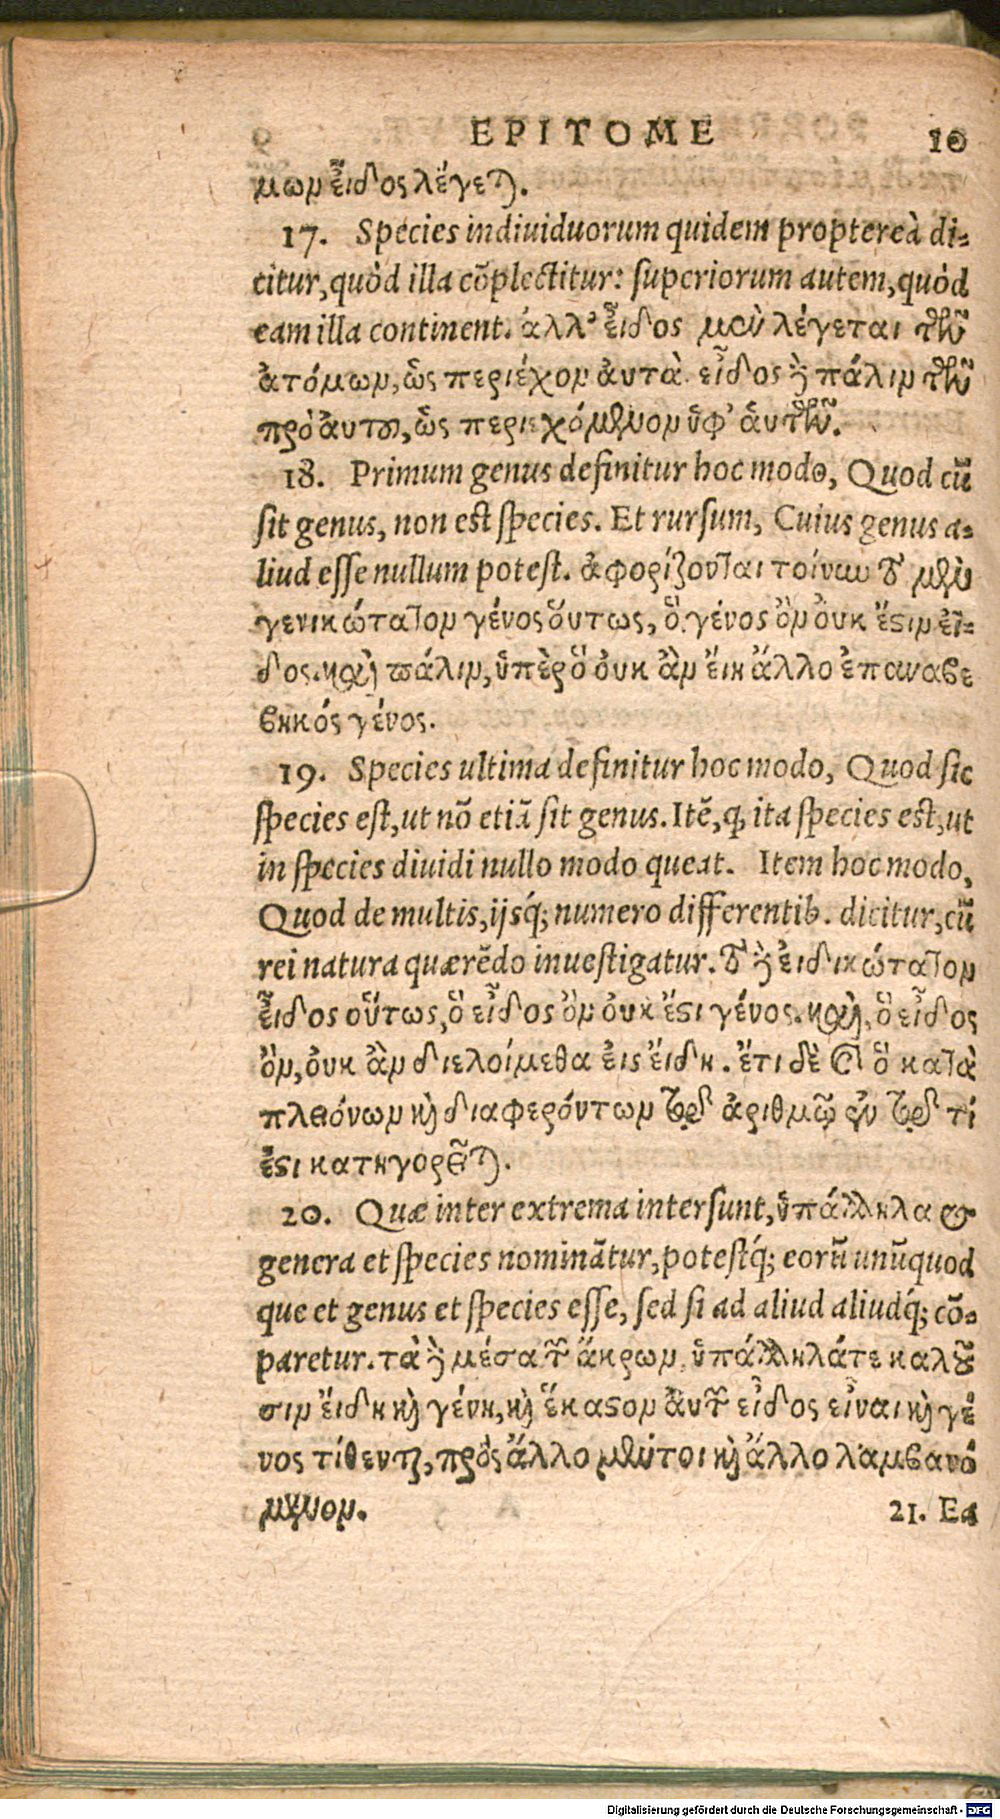 EPITOME 10
μων εἶδος λέγεται.
17. Species indiuiduorum quidem proptereà di-
citur, quòd illa cõplectitur: superiorum autem, quòd
eam illa continent. ἀλλ' εἶδος μὲν λέγεται τῶν
ἀτόμων, ὡς περιέχον ἀυτὰ. εἶδος δὲ πάλιν τῶν
πρὸ ἀυτοῦ, ὡς περιεχόμενον ὑφ' ἀυτῶν.
18. Primum genus definitur hoc modo, Quod cũ
sit genus, non est species. Et rursum, Cuius genus a-
liud esse nullum potest. ἀφορίζονται τοίνυν τὸ μὲν
γενικώτατον γένος οὕτως, ὃ γένος ὂν ὀυκ ἔστιν εἶ-
δος. καὶ πάλιν, ὑπὲρ ὃ ὀυκ ἂν ἔιη ἄλλο ἐπαναβε
βηκός γένος.
19. Species ultima definitur hoc modo, Quod sic
species est, ut nõ etiã sit genus. Itẽ, q ita species est, ut
in species diuidi nullo modo queat. Item hoc modo,
Quod de multis, ijsq́; numero differentib. dicitur, cũ
rei natura quærẽdo inuestigatur. τὸ δὲ ἐιδικώτατον
εἶδος οὕτως, ὃ εἶδος ὂν ὀυκ ἔστι γένος. καὶ, ὃ εἶδος
ὂν, ὀυκ ἂν διελοίμεθα ἐις ἔιδη. ἔτι δὲ καὶ ὃ κατὰ
πλειόνων καὶ διαφερόντων τῷ ἀριθμῷ ἐν τῷ τί
ἐστι κατηγορεῖται.
20. Quæ inter extrema intersunt, ὑπάλληλα &
genera et species nominãtur, potestq́; eorũ unũquod
que et genus et species esse, sed si ad aliud aliudq́; cõ-
paretur. τὰ δὲ μέσα τῶν ἄκρων ὑπάλληλά τε καλοῦ
σιν ἔιδη καὶ γένη, καὶ ἕκαστον ἀυτῶν εἶδος εἶναι καὶ γέ
νος τίθενται, πρὸς ἄλλο μέντοι καὶ ἄλλο λαμβανό
μενον. 21. Ea
Digitalisierung gefördert durch die Deutsche Forschungsgemeinschaft - DFG